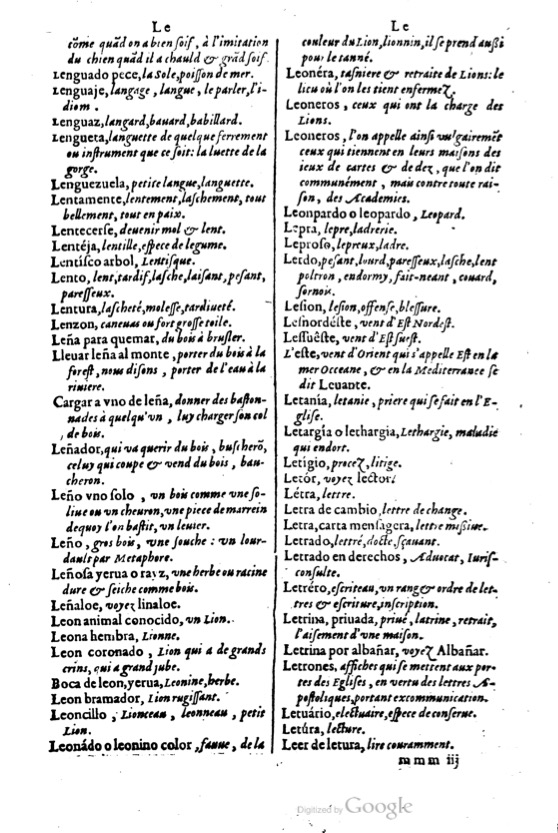 Le
cõme quãd on a bien soif, à l'imitation
du chien quãd il a chauld & grãd soif.
Lenguado pece, la Sole, poisson de mer.
Lenguaje, langage, langue, le parler, l'i-
diom.
Lenguaz, langard, bauard, babillard.
Lengueta, languette de quelque ferrement
ou instrument que ce soit: la luette de la
gorge.
Lenguezuela, petite langue, languette.
Lentamente, lentement, laschement, tout
bellement, tout en paix.
Lentecerse, deuenir mol & lent.
Lentéja, lentille, espece de legume.
Lentísco arbol, Lentisque.
Lento, lent, tardif, lasche, laisant, pesant,
paresseux.
Lentura, lascheté, molesse, tardiueté.
Lenzon, caneuas ou fort grosse toile.
Leña para quemar, du bois à brusler.
Lleuar leña al monte, porter du bois à la
forest, nous disons, porter de l'eau à la
riuiere.
Cargar a vno de leña, donner des baston-
nades à quelqu'vn, luy charger son col
de bois.
Leñador, qui va querir du bois, buscherõ,
celuy qui coupe & vend du bois, bau-
cheron.
Leño vno solo, vn bois comme vne so-
liue ou vn cheuron, vne piece de marrein
dequoy l'on bastit, vn leuier.
Leño, gros bois, vne souche: vn lour-
daultpar Metaphore.
Leñosa yerua o rayz, vne herbe ou racine
dure & seiche comme bois.
Leñaloe, voyez linaloe.
Leon animal conocido, vn Lion.
Leona hembra, Lionne.
Leon coronado, Lion qui a de grands
crins, qui a grand jube.
Boca de leon, yerua, Leonine, herbe.
Leon bramador, Lion rugissant.
Leoncillo, Lionceau, leonneau, petit
Lion.
Leonádo o leonino color, fauue, de la
Le
couleur du Lion, lionnin, il se prend aussi
pour le tanné.
Leonéra, tasniere & retraite de Lions: le
lieu où l'on les tient enfermez.
Leoneros, ceux qui ont la charge des
Lions.
Leoneros, l'on appelle ainsi vulgairemẽt
ceux qui tiennent en leurs maisons des
ieux de cartes & de dez, que l'on dit
communément, mais contre toute rai-
son, des Academies.
Leonpardo o leopardo, Leopard.
Lepra, lepre, ladrerie.
Leproso, lepreux, ladre.
Lerdo, pesant, lourd, paresseux, lasche, lent
poltron, endormy, fait-neant, couard,
sornois.
Lesion, lesion, offense, blessure.
Lesnordéste, vent d'Est Nordest.
Lessuêste, vent d'Est suest.
L'este, vent d'Orient qui s'appelle Est en la
mer Occeane, & en la Mediterranee se
dit Leuante.
Letanía, letanie, priere qui se fait en l'E-
glise.
Letargía o lethargia, Lethargie, maladie
qui endort.
Letigio, procez, litige.
Letór, voyez lector.
Létra, lettre.
Letra de cambio, lettre de change.
Letra, carta mensagera, lettre missiue.
Letrado, lettré, docte, sçauant.
Letrado en derechos, Aduocat, Iuris-
consulte.
Letréro, escriteau, vn rang & ordre de let-
tres & escriture, inscription.
Letrina, priuada, priué, latrine, retrait,
l'aisement d'vne maison.
Letrina por albañar, voyez Albañar.
Letrones, affiches qui se mettent aux por-
tes des Eglises, en vertu des lettres A-
postoliques, portant excommunication.
Letuário, electuaire, espece de conserue.
Letúra, lecture.
Leer de letura, lire couramment.
mmm iij
Digitized by Google